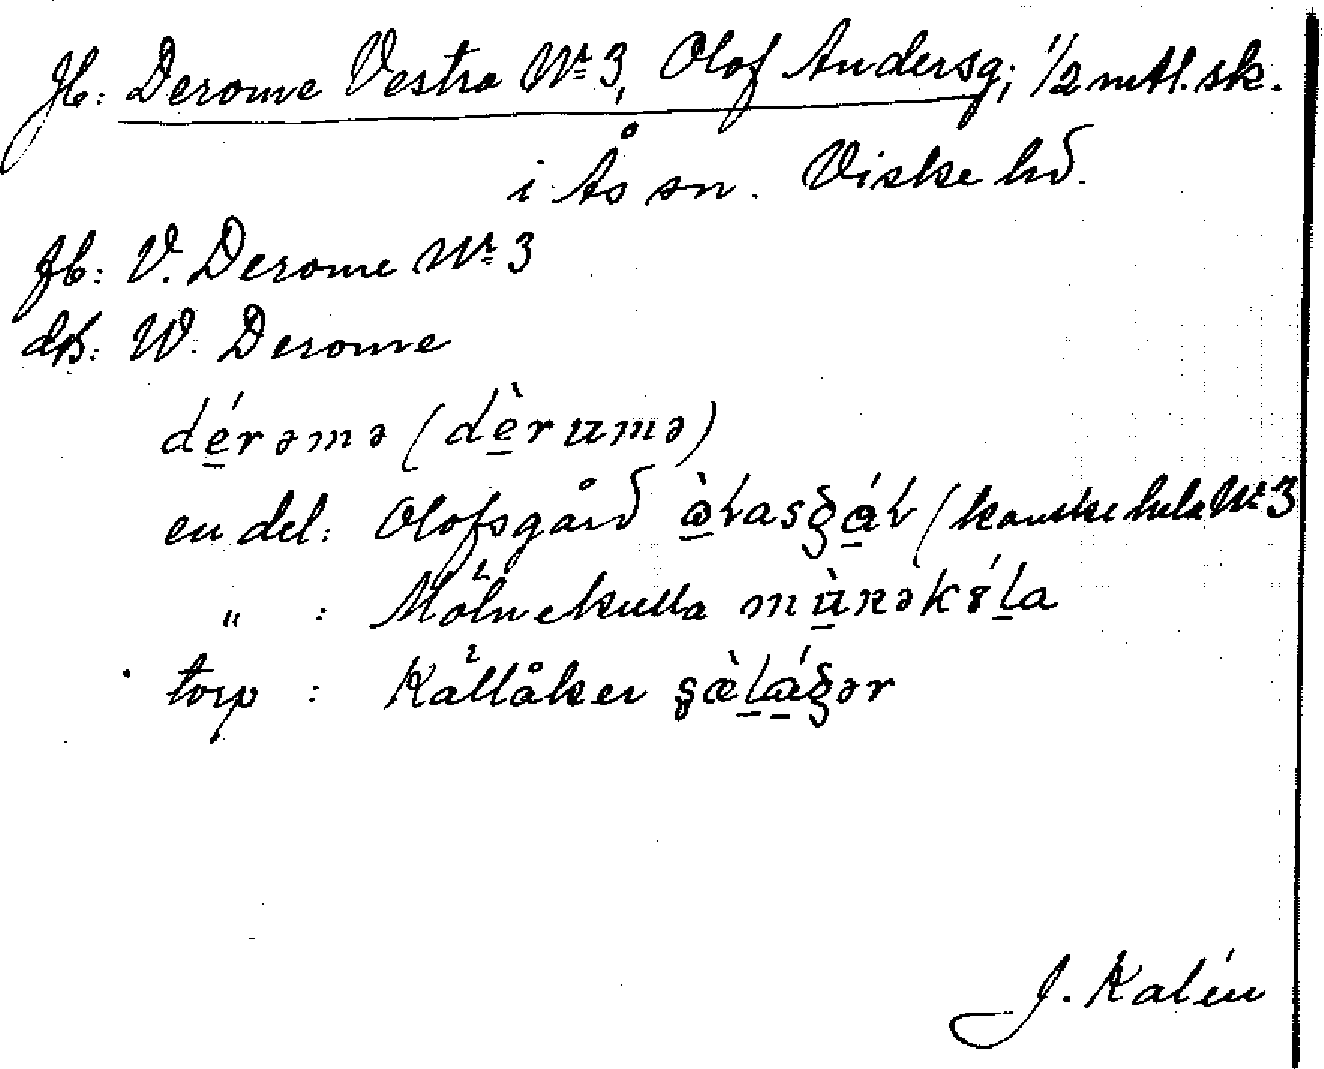 Jb: Derome Vestra Nr 3, Olof Andersg; 1/2 mtl. sk.
i Ås sn. Viske hd.
Jb: V. Derome Nr 3
W. Derome
dérəmə (dèrumə)
en del: Olofsgård (kanske hela Nr 3
" : Mölnekulla
torp : Källåker
J. Kalén